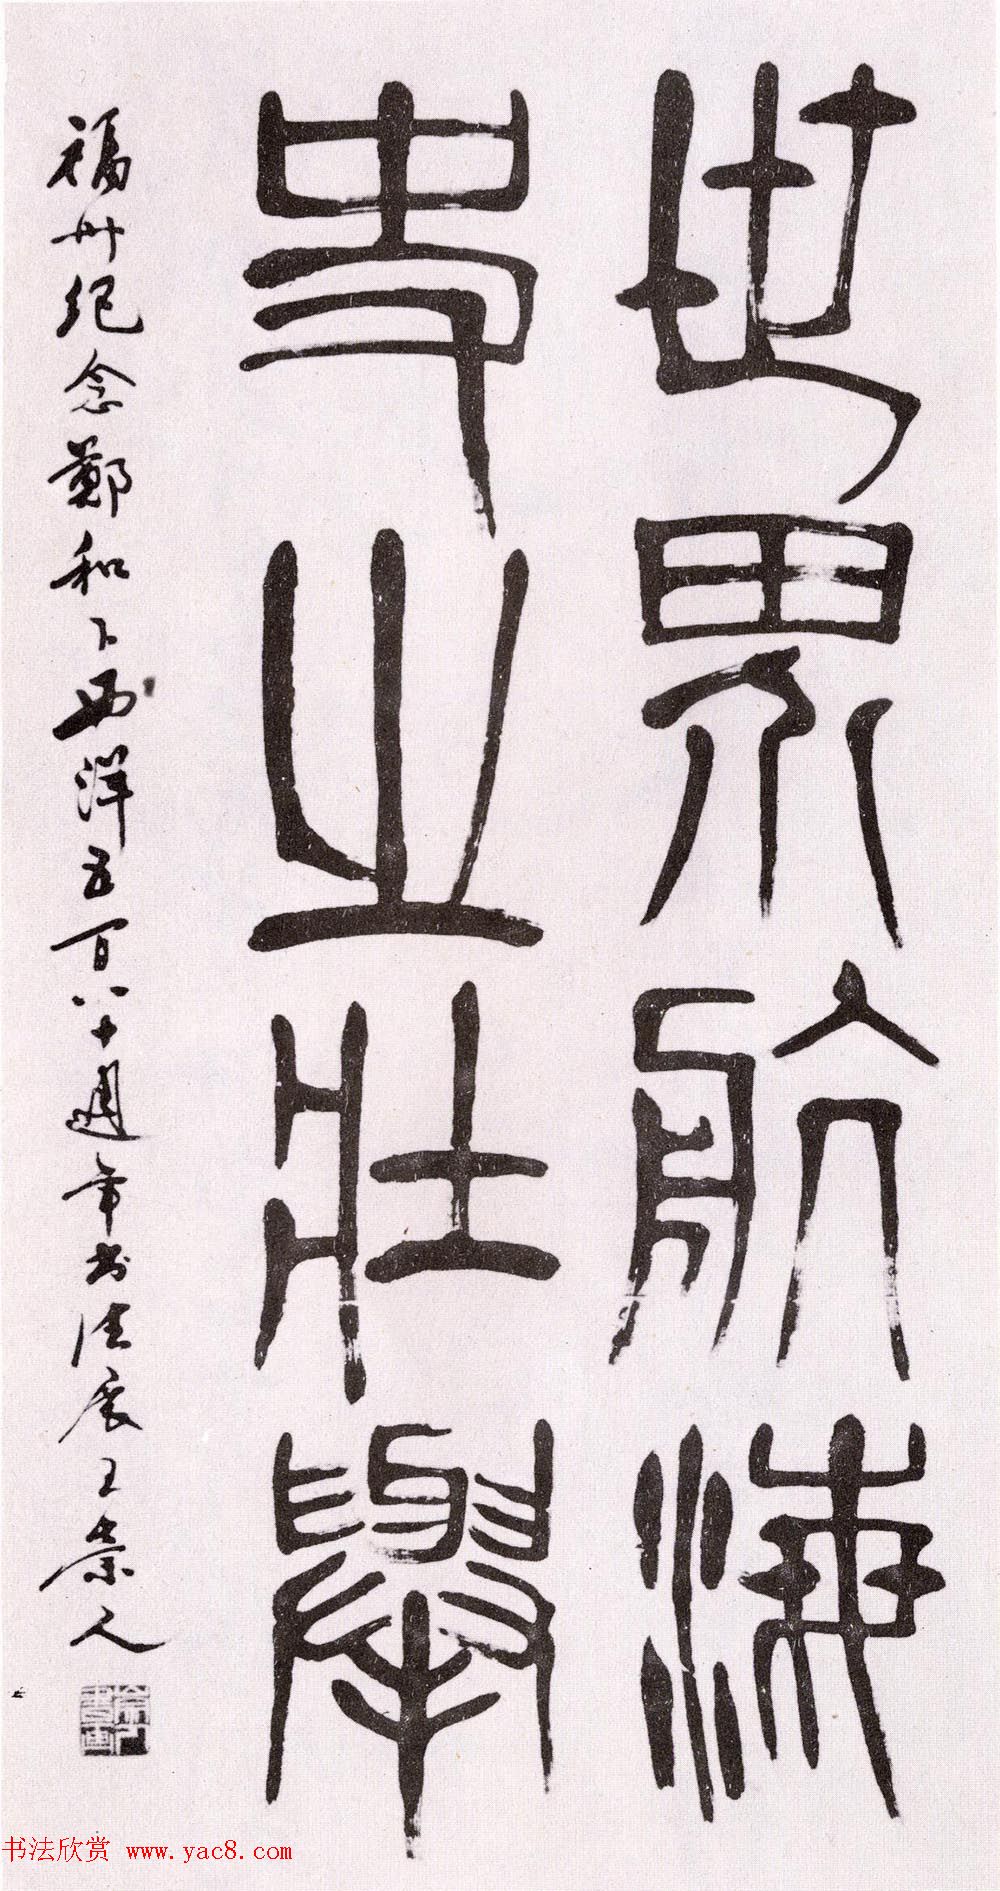 世界航海
史之壯舉
福州紀念鄭和下西洋五百八十週年書法展王崇人
书法欣赏 www.yac8.com